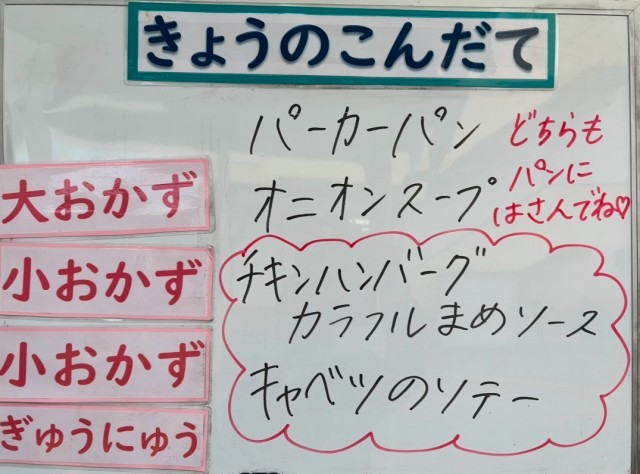 きょうのこんだて
パーカーパン
どちらも
パンに
はさんでね♡
大おかず
オニオンスープ
小おかず
チキンハンバーグ
カラフルまめソース
小おかず
キャベツのソテー
ぎゅうにゅう